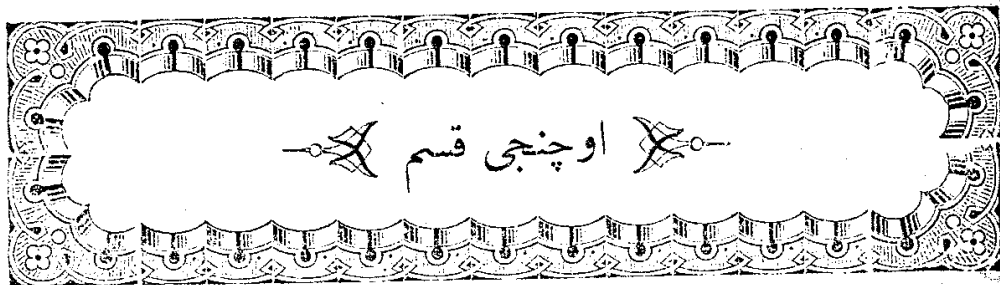 اوچنجی قسم